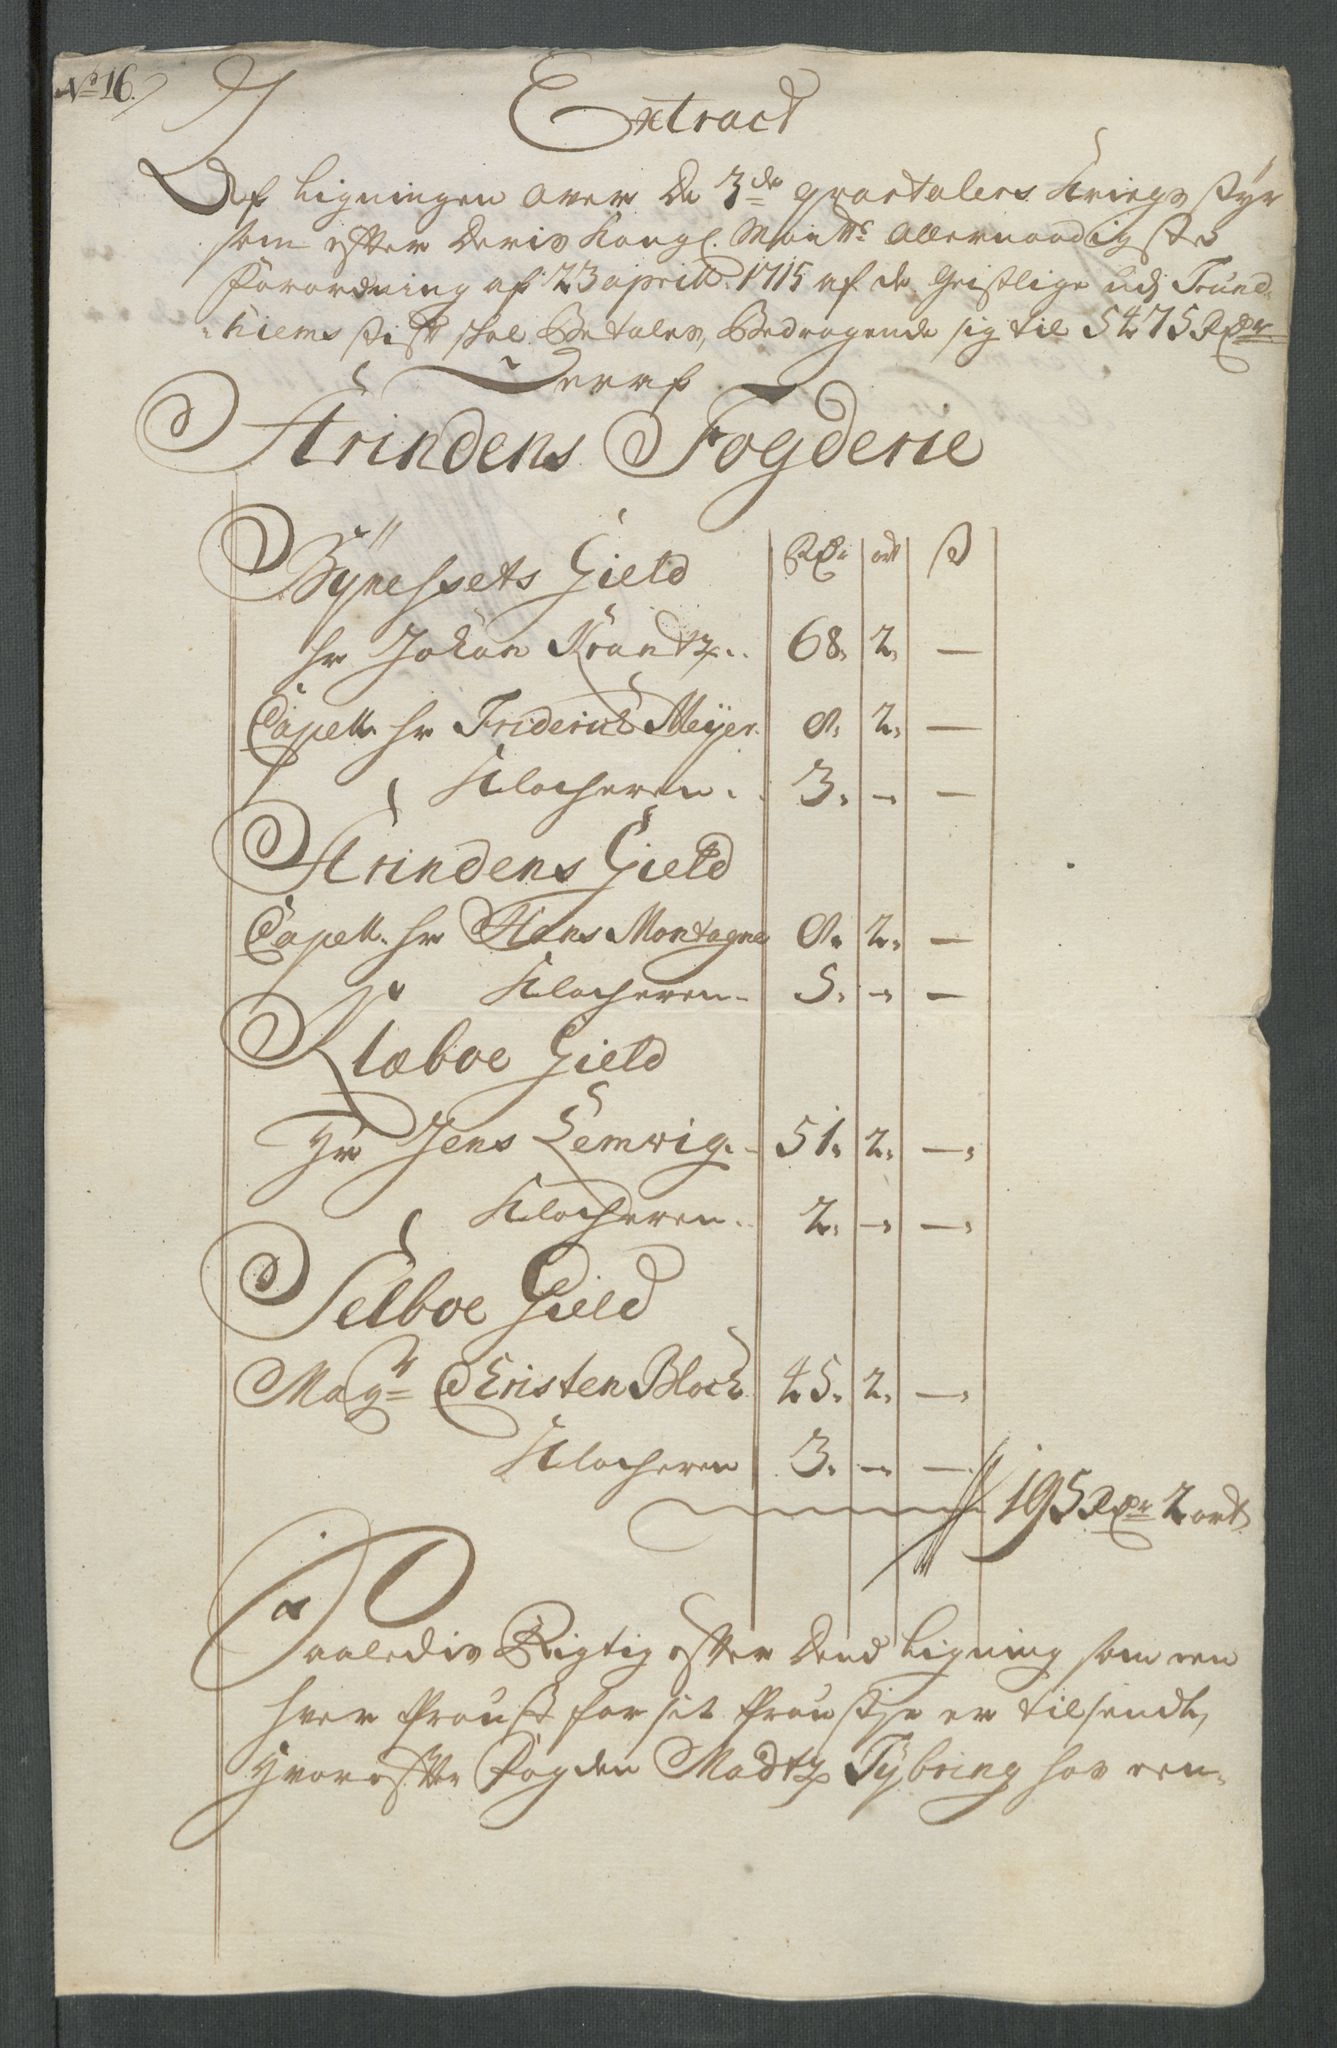 No 16.
Extract
Af Ligningen over De 3de qvartalers Kriegs Styr
som efter Deris Kongl. Maytts Allernaadigste
Forordning af 23 aprill 1715 af de Geistlige udj Trund-
hiems Stift skal Betales, Bedragende sig til 5475 Rdr
Deraf
Strindens Fogderie
Bynessets Gield Rdr ort s
hr Johan Krantz .. 68. 2. —
Capell. hr Friderich Meyer. 8. 2. —
Klocheren. 3. — —
Strindens Gield
Capell. hr Hans Montagne 8. 2. —
Klocheren. 5. — —
Klæboe Gield
Hr Jens Lemvig. 51. 2. —
Klocheren. 2. — —
Selboe Gield
Magr Christen Bloch 45. 2. —
Klocheren 3. — —
195 Rdr 2 ort
Saaledis Rigtig efter Dend Ligning som een
hver Proust for sit Proustje er tilsendt,
Hvorefter Fogden Madtz Tybring har een-